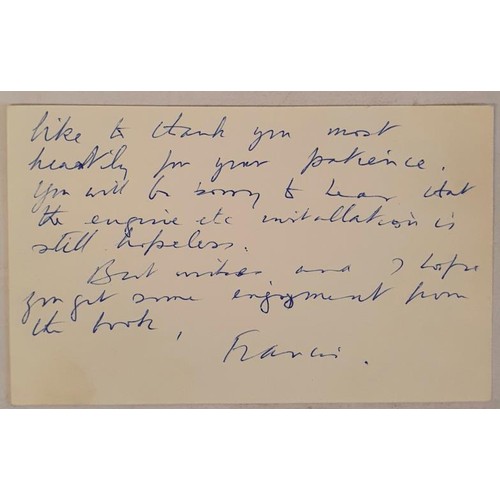 like to thank you most
heartily for your patience.
You will be sorry to hear that
the engine etc installation is
still hopeless.
Best wishes and I hope
you get some enjoyment from
the book,
Francis.